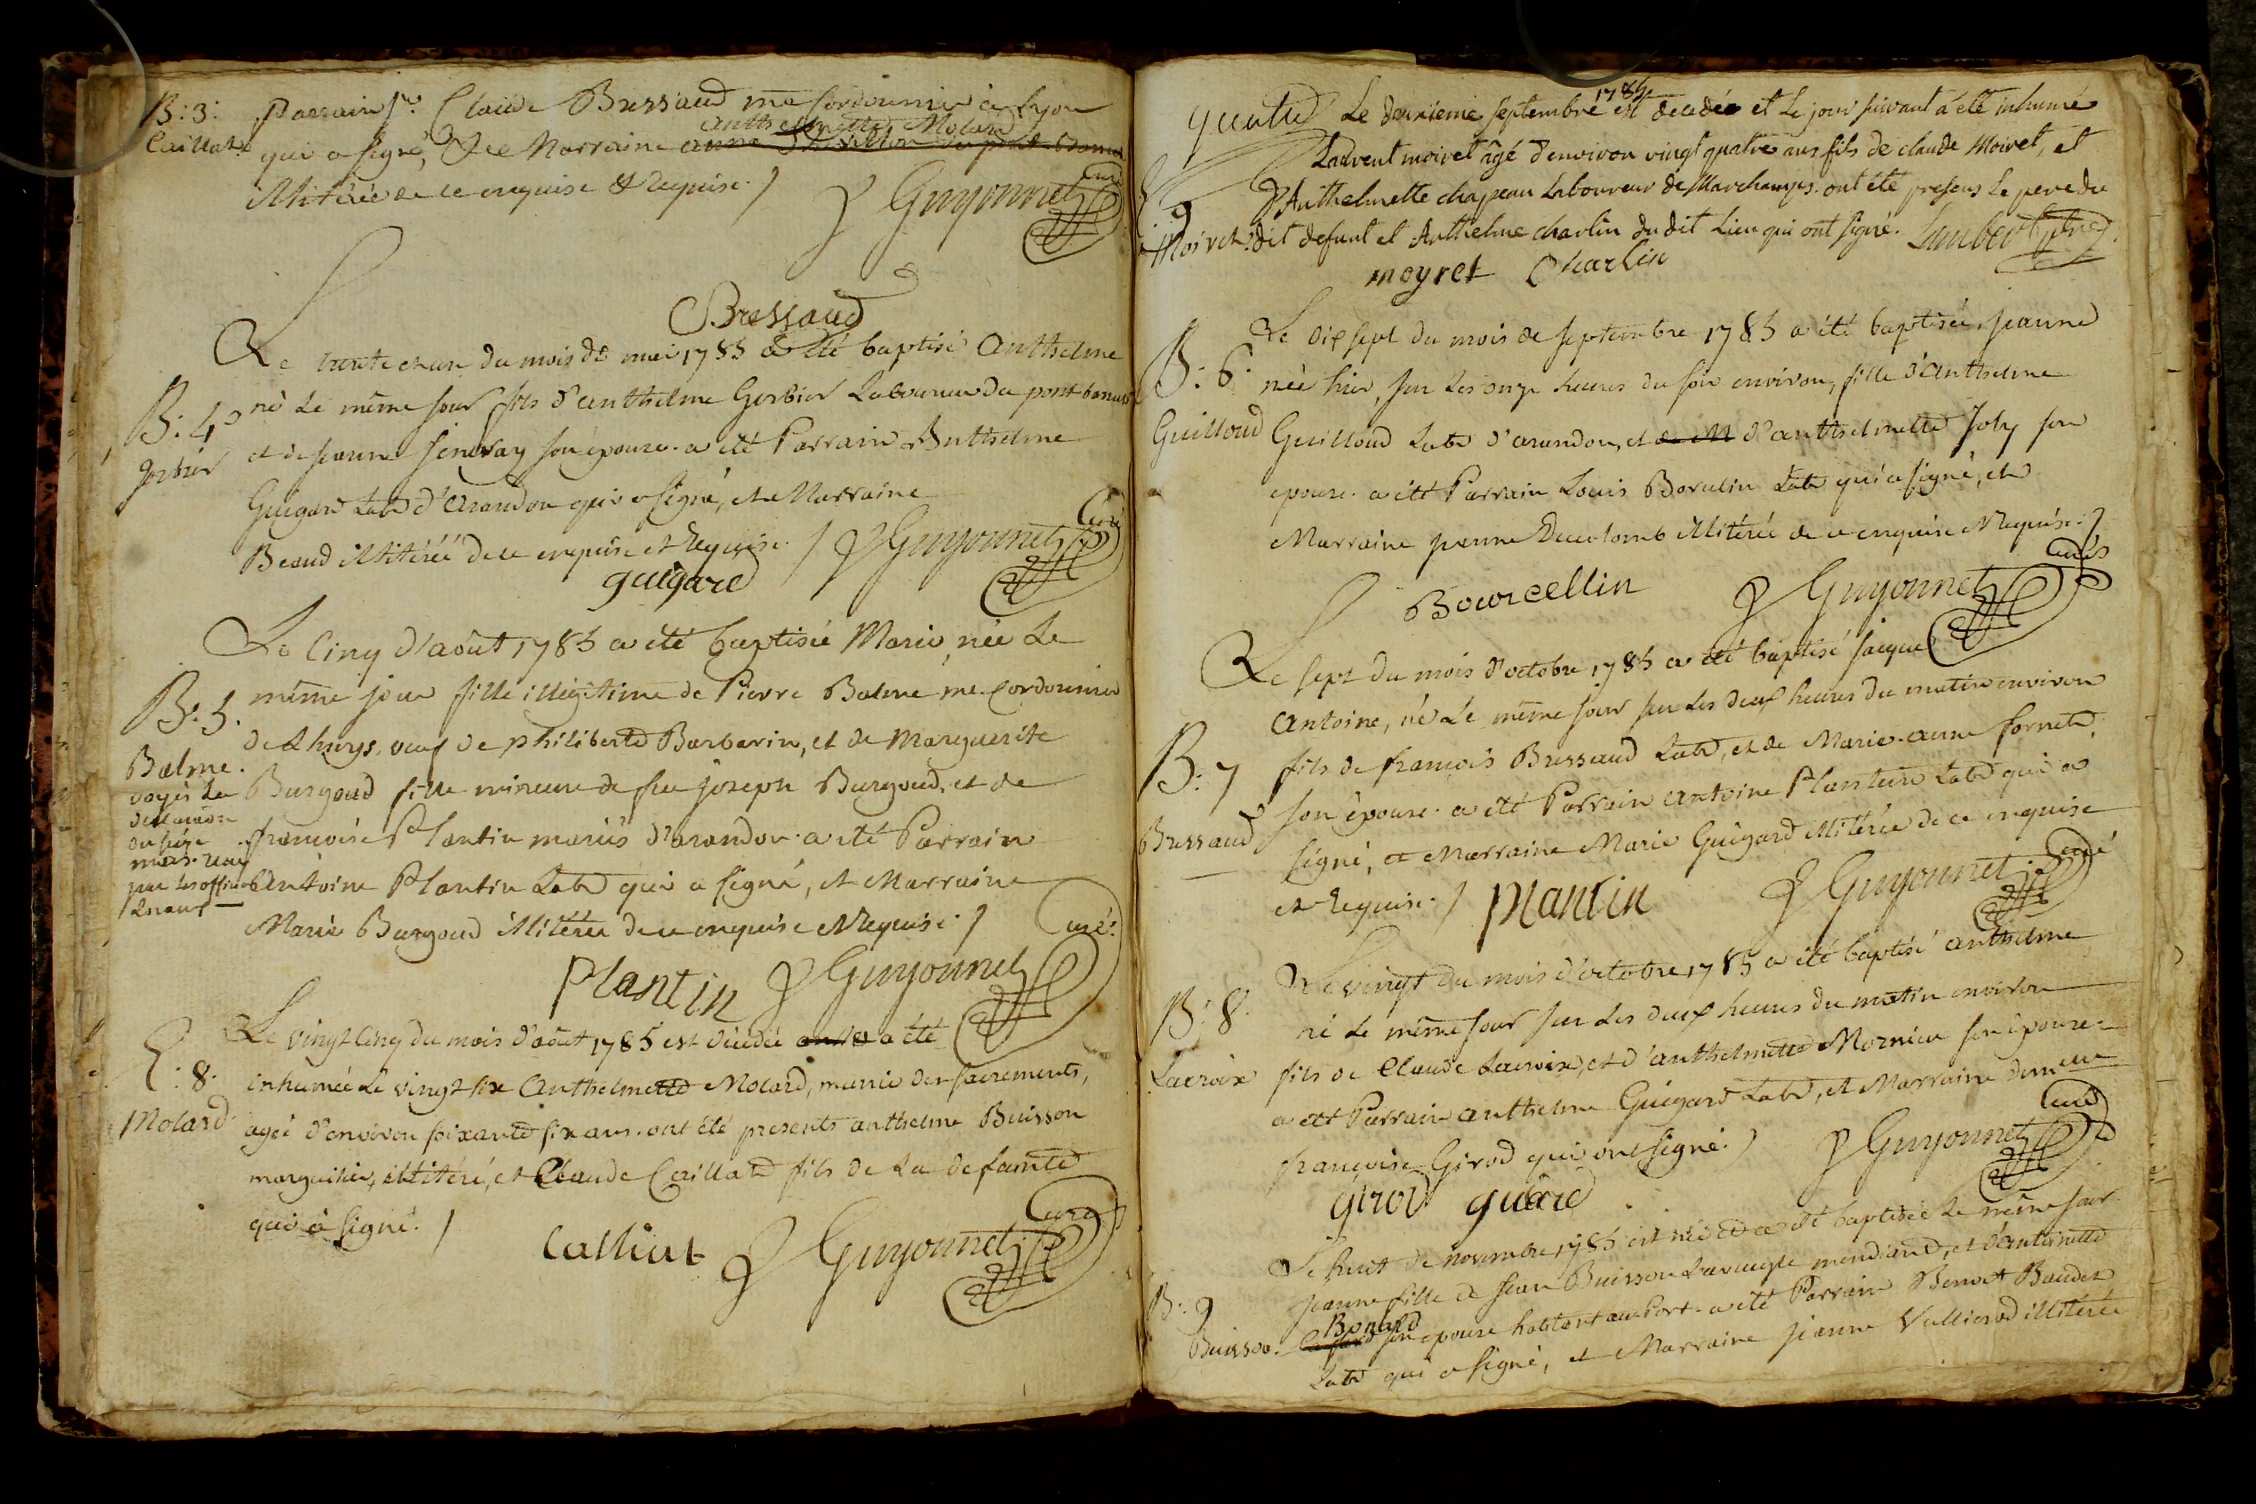 B: 3: Parrain sr. Claude Bressaud me cordonnier à Lyon
Caillat. anthelmette Molard
qui a signé, et Marraine
illitérée de ce enquise et requise. / Guyonnet Curé
Bressaud
Le trente et un du mois de mai 1785 a été baptisé anthelme
B: 4° né le même jour fils d'anthelme Gorbier Laboureur du pont
gorbier et de jeanne son épouse. a été Parrain Anthelme
Guigard Labr d'arandon qui a signé, et Marraine
Beaud illitérée de ce enquise et requise. / Guyonnet Curé
guigard
Le Cinq d'août 1785 a été baptisée Marie, née le
B: 5. même jour fille illégitime de Pierre Balme me. Cordonnier
de Lhuys, veuf de philiberte Barbarin, et de Marguerite
Balme. Burgoud fille mineure de feu joseph Burgoud, et de
voyés la
françoise Plantin mariés d'arandon. a été Parrain
antoine Plantin Labr qui a signé, et Marraine
Marie Burgoud illitérée de ce enquise et requise. / Curé.
Plantin Guyonnet
Le vingt cinq du mois d'août 1785 est décédée a été
E: 8. inhumée le vingt six Anthelmette Molard, munie des sacrements,
Molard agée d'environ soixante six ans. ont été presents anthelme Buisson
marguillier, illitéré, et Claude Caillat fils de la defunte
qui a signé. / Curé
Calliat Guyonnet
1785
Le deuxieme septembre est decedé et le jour suivant a été inhumé
Laurent moiret âgé d'environ vingt quatre ans fils de claude Moiret, et
E. 9 d'Anthelmette chapeau Laboureur de Marchamps. ont été presens le pere du
Moiret. dit defunt et Anthelme charlin du dit Lieu qui ont signé. Lambert ptre
moyret Charlin
Le dix sept du mois de septembre 1785 a été baptisée jeanne
B: 6. née hier, sur les onze heures du soir environ, fille d'anthelme
Guilloud Guilloud Labr d'arandon, et de M d'anthelmette Joly son
epouse. a été Parrain Louis Borcelin Labr qui a signé, et
Marraine jeanne Ducolomb illitérée de ce enquise et requise. / Curé
Bourcellin Guyonnet
Le sept du mois d'octobre 1785 a été baptisé jacque
antoine, né le même jour sur les deux heures du matin environ
B: 7 fils de françois Bressaud Labr, et de Marie-anne
Bressaud son épouse. a été Parrain antoine Plantin Labr qui a
signé, et Marraine Marie Guigard illitérée de ce enquise
et requise. / Plantin Guyonnet Curé
Le vingt du mois d'octobre 1785 a été baptisé anthelme
B: 8. né le même jour sur les deux heures du matin environ
Lacroix fils de Claude Lacroix, et d'anthelmette Mornieu son épouse.
a été Parrain anthelme Guigard Labr, et Marraine
françoise Girod qui ont signé. / Guyonnet Curé
girod
Le huit de novembre 1785 est née et a été baptisée le même jour
jeanne fille de jean Buisson L'aveugle mendiant, et d'antoinette
B: 9 Bonard
Buisson. son épouse habitant au Port. a été Parrain Benoit Baudet
Labr qui a signé, et Marraine jeanne Vullierod illitérée